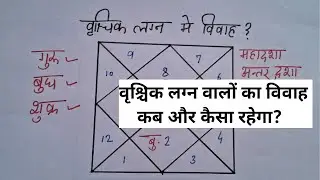 वृश्चिक लग्न मे विवाह ?
गुरू
बुध
शुक्र
महादशा
अन्तर दशा
9
7
10
8
6
वृश्चिक लग्न वालों का विवाह
कब और कैसा रहेगा?
12
बु. 2
4
1
3